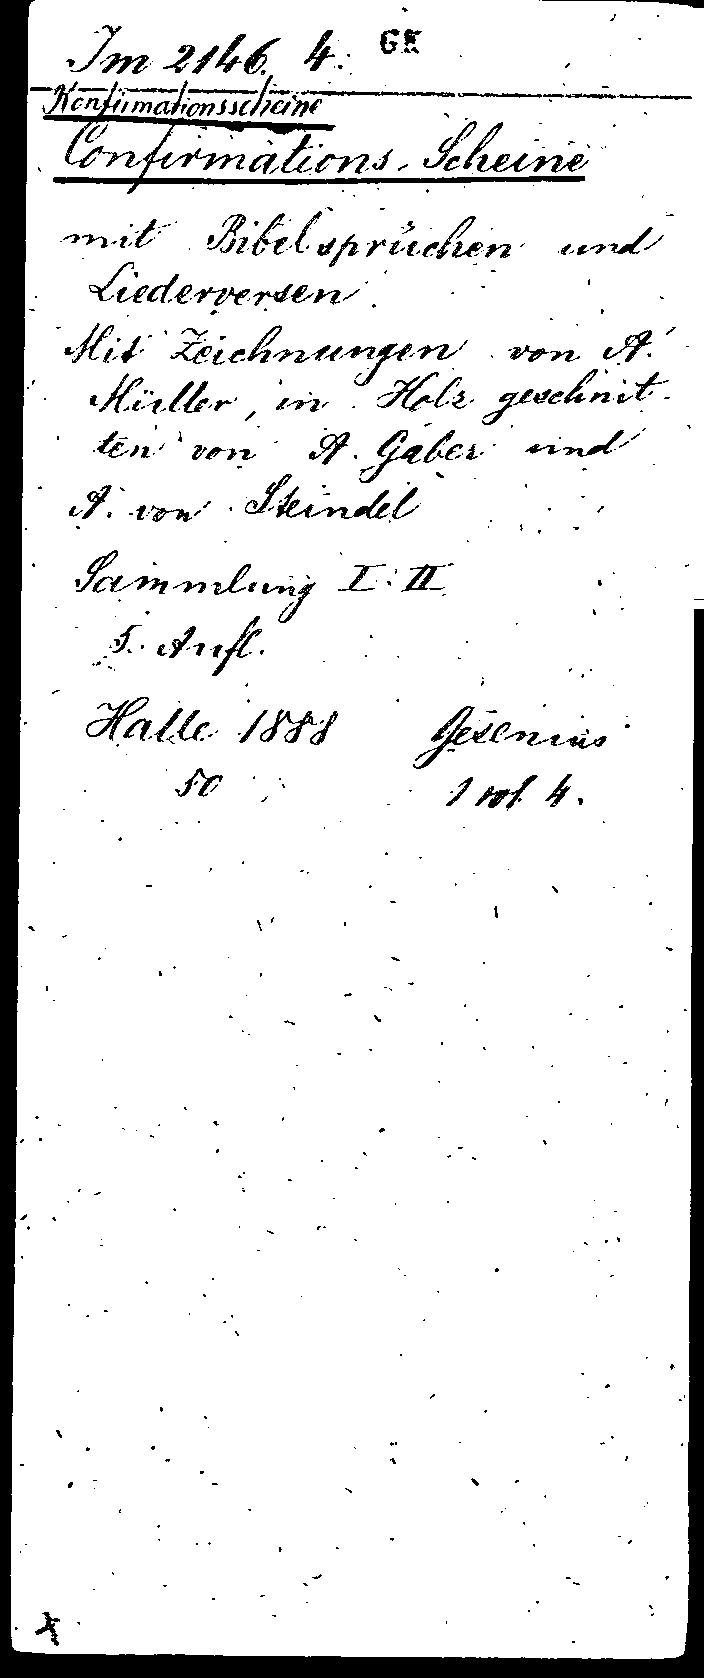 Im 2146. 4. GK
Konfirmationsscheine
Confirmations-Scheine
mit Bibelsprüchen und
Liederversen
Mit Zeichnungen von A.
Müller, in Holz geschnit-
ten von A. Gaber und
A. von Steindel
Sammlung I. II
5. Aufl.
Halle 1888 Gesenius
50 1 vol. 4.